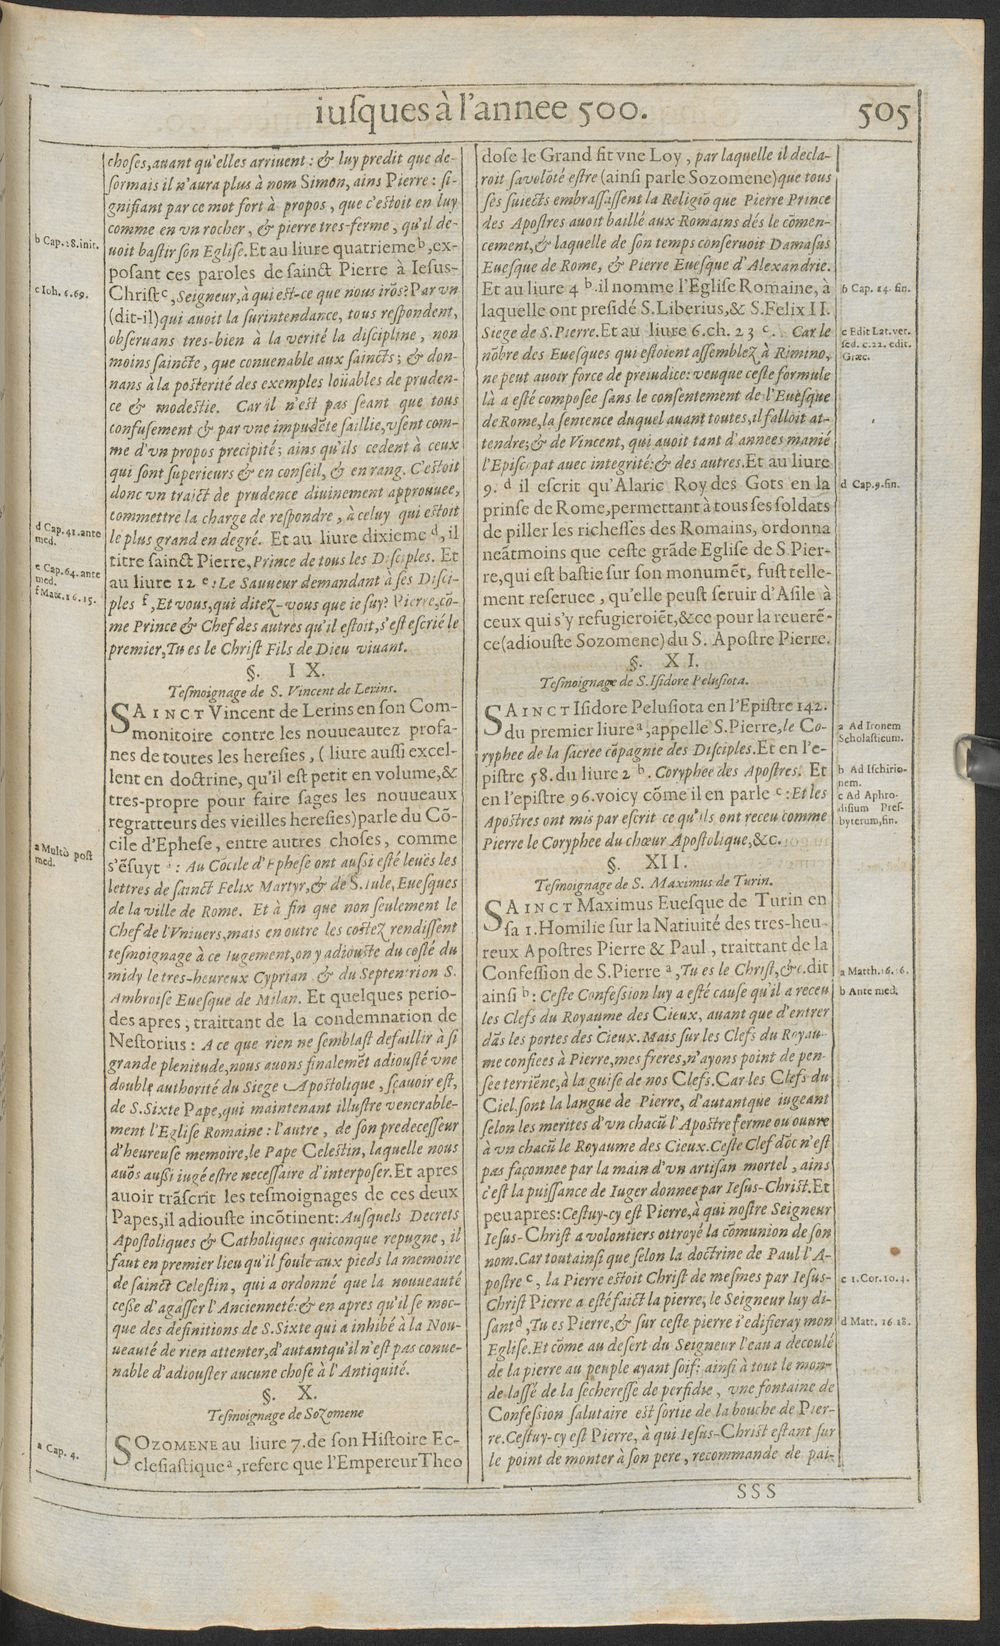 iuſques à l'annee 500.
505
choſes, auant qu'elles arriuent: & luy predit que de-
ſormais il n'aura plus à nom Simon, ains Pierre: ſi-
gnifiant par ce mot fort à propos, que c'eſtoit en luy
comme en vn rocher, & pierre tres-ferme, qu'il de-
uoit baſtir ſon Egliſe. Et au liure quatrieme b, ex-
poſant ces paroles de ſainct Pierre à Ieſus-
Chriſt c, Seigneur, à qui eſt-ce que nous irōs? Par vn
(dit-il) qui auoit la ſurintendance, tous reſpondent,
obſeruans tres-bien à la verité la diſcipline, non
moins ſaincte, que conuenable aux ſaincts; & don-
nans à la poſterité des exemples loüables de pruden-
ce & modeſtie. Car il n'eſt pas ſeant que tous
confuſement & par vne impudēte ſaillie, vſent com-
me d'vn propos precipité; ains qu'ils cedent à ceux
qui ſont ſuperieurs & en conſeil, & en rang. C'eſtoit
donc vn traict de prudence diuinement approuuee,
commettre la charge de reſpondre, à celuy qui eſtoit
le plus grand en degré. Et au liure dixieme d, il
titre ſainct Pierre, Prince de tous les Diſciples. Et
au liure 12 e: Le Sauueur demandant à ſes Diſci-
ples f, Et vous, qui ditez-vous que ie ſuy? Pierre, cō-
me Prince & Chef des autres qu'il eſtoit, s'eſt eſcrié le
premier, Tu es le Chriſt Fils de Dieu viuant.
§. IX.
Teſmoignage de S. Vincent de Lerins.
SAINCT Vincent de Lerins en ſon Com-
monitoire contre les nouueautez profa-
nes de toutes les hereſies, (liure auſſi excel-
lent en doctrine, qu'il eſt petit en volume, &
tres-propre pour faire ſages les nouueaux
regratteurs des vieilles hereſies) parle du Cō-
cile d'Epheſe, entre autres choſes, comme
s'ēſuyt a: Au Cōcile d'Epheſe ont auſſi eſté leuës les
lettres de ſainct Felix Martyr, & de S. Iule, Eueſques
de la ville de Rome. Et à fin que non ſeulement le
Chef de l'Vniuers, mais en outre les coſtez rendiſſent
teſmoignage à ce Iugement, on y adiouſte du coſté du
midy le tres-heureux Cyprian & du Septentrion S.
Ambroiſe Eueſque de Milan. Et quelques perio-
des apres, traittant de la condemnation de
Neſtorius: A ce que rien ne ſemblaſt defaillir à ſi
grande plenitude, nous auons finalemēt adiouſté vne
double authorité du Siege Apoſtolique, ſçauoir eſt,
de S. Sixte Pape, qui maintenant illuſtre venerable-
ment l'Egliſe Romaine: l'autre, de ſon predeceſſeur
d'heureuſe memoire, le Pape Celeſtin, laquelle nous
auōs auſſi iugé eſtre neceſſaire d'interpoſer. Et apres
auoir trāſcrit les teſmoignages de ces deux
Papes, il adiouſte incōtinent: Auſquels Decrets
Apoſtoliques & Catholiques quiconque repugne, il
faut en premier lieu qu'il foule aux pieds la memoire
de ſainct Celeſtin, qui a ordonné que la nouueauté
ceſſe d'agaſſer l'Ancienneté: & en apres qu'il ſe moc-
que des definitions de S. Sixte qui a inhibé à la Nou-
ueauté de rien attenter, d'autant qu'il n'eſt pas conue-
nable d'adiouſter aucune choſe à l'Antiquité.
§. X.
Teſmoignage de Sozomene
SOZOMENE au liure 7. de ſon Hiſtoire Ec-
cleſiaſtique a, refere que l'Empereur Theo
b Cap. 18. init.
c Ioh. 6. 69.
d Cap. 41. ante
med.
e Cap. 64. ante
med.
f Matt. 16. 15.
a Multò poſt
med.
a Cap. 4.
doſe le Grand fit vne Loy, par laquelle il decla-
roit ſa volōté eſtre (ainſi parle Sozomene) que tous
ſes ſuiects embraſſaſſent la Religiō que Pierre Prince
des Apoſtres auoit baillé aux Romains dés le cōmen-
cement, & laquelle de ſon temps conſeruoit Damaſus
Eueſque de Rome, & Pierre Eueſque d'Alexandrie.
Et au liure 4 b. il nomme l'Egliſe Romaine, à
laquelle ont preſidé S. Liberius, & S. Felix II.
Siege de S. Pierre. Et au liure 6. ch. 23 c. Car le
nōbre des Eueſques qui eſtoient aſſemblez à Rimino,
ne peut auoir force de preiudice: veu que ceſte formule
là a eſté compoſee ſans le conſentement de l'Eueſque
de Rome, la ſentence duquel auant toutes, il falloit at-
tendre; & de Vincent, qui auoit tant d'annees manié
l'Epiſcopat auec integrité: & des autres. Et au liure
9. d il eſcrit qu'Alaric Roy des Gots en la
prinſe de Rome, permettant à tous ſes ſoldats
de piller les richeſſes des Romains, ordonna
neātmoins que ceſte grāde Egliſe de S. Pier-
re, qui eſt baſtie ſur ſon monumēt, fuſt telle-
ment reſeruee, qu'elle peuſt ſeruir d'Aſile à
ceux qui s'y refugieroiēt, &ce pour la reuerē-
ce (adiouſte Sozomene) du S. Apoſtre Pierre.
§. XI.
Teſmoignage de S. Iſidore Peluſiota.
SAINCT Iſidore Peluſiota en l'Epiſtre 142.
du premier liure a, appelle S. Pierre, le Co-
ryphee de la ſacree cōpagnie des Diſciples. Et en l'e-
piſtre 58. du liure 2 b. Coryphee des Apoſtres. Et
en l'epiſtre 96. voicy cōme il en parle c: Et les
Apoſtres ont mis par eſcrit ce qu'ils ont receu comme
Pierre le Coryphee du chœur Apoſtolique, &c.
§. XII.
Teſmoignage de S. Maximus de Turin.
SAINCT Maximus Eueſque de Turin en
ſa 1. Homilie ſur la Natiuité des tres-heu-
reux Apoſtres Pierre & Paul, traittant de la
Confeſſion de S. Pierre a, Tu es le Chriſt, &c. dit
ainſi b: Ceſte Confeſſion luy a eſté cauſe qu'il a receu
les Clefs du Royaume des Cieux, auant que d'entrer
dās les portes des Cieux. Mais ſur les Clefs du Royau-
me confiees à Pierre, mes freres, n'ayons point de pen-
ſee terriēne, à la guiſe de nos Clefs. Car les Clefs du
Ciel ſont la langue de Pierre, d'autant que iugeant
ſelon les merites d'vn chacū l'Apoſtre ferme ou ouure
à vn chacū le Royaume des Cieux. Ceſte Clef dōc n'eſt
pas façonnee par la main d'vn artiſan mortel, ains
c'eſt la puiſſance de Iuger donnee par Ieſus-Chriſt. Et
peu apres: Ceſtuy-cy eſt Pierre, à qui noſtre Seigneur
Ieſus-Chriſt a volontiers ottroyé la cōmunion de ſon
nom. Car tout ainſi que ſelon la doctrine de Paul l'A-
poſtre c, la Pierre eſtoit Chriſt de meſmes par Ieſus-
Chriſt Pierre a eſté faict la pierre, le Seigneur luy di-
ſant d, Tu es Pierre, & ſur ceſte pierre i'edifieray mon
Egliſe. Et cōme au deſert du Seigneur l'eau a decoulé
de la pierre au peuple ayant ſoif: ainſi à tout le mon-
de laſſé de la ſechereſſe de perfidie, vne fontaine de
Confeſſion ſalutaire eſt ſortie de la bouche de Pier-
re. Ceſtuy-cy eſt Pierre, à qui Ieſus-Chriſt eſtant ſur
le point de monter à ſon pere, recommande de pai-
b Cap. 14. fin.
c Edit Lat. ver.
ſed. c. 22. edit.
Græc.
d Cap. 9. fin.
a Ad Ironem
Scholaſticum.
b Ad Iſchirio-
nem.
c Ad Aphro-
diſium Preſ-
byterum, fin.
a Matth. 16. 16.
b Ante med.
c 1. Cor. 10. 4.
d Matt. 16 18.
SSS